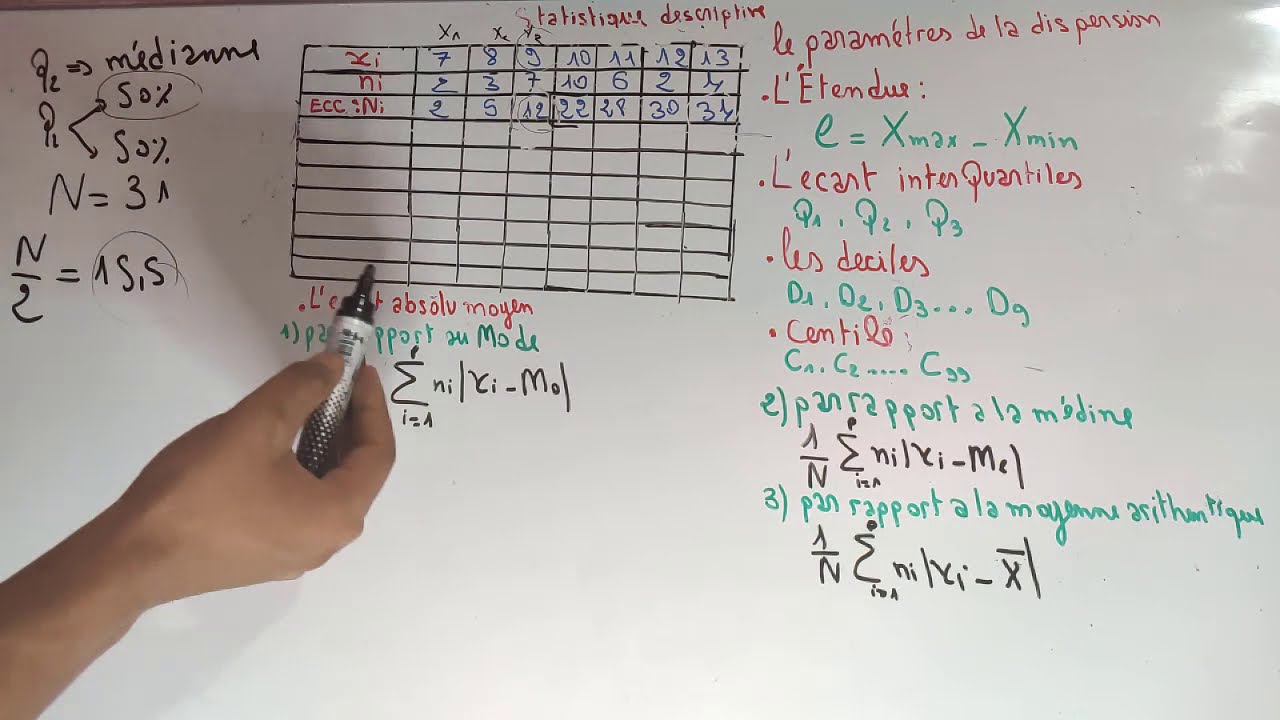 Statistique descriptive
q2 => médianne
50%
50%
N = 31
N/2 = 15,5
xi 7 8 9 10 11 12 13
ni 2 3 7 10 6 2
ECC : Ni 2 5 12 22 28 30
.L'écart absolu moyen
1) par rapport au Mode
∑ ni|xi - Mo|
i=1
le paramétres de la dispension
.L'Étendue :
e = Xmax - Xmin
.L'ecart interQuantiles
Q1 , Q2 , Q3
.les deciles
D1, D2, D3... D9
. Centile :
C1. C2 ..... C99
2) par rapport a la médine
1/N ∑ ni|xi - Me|
i=1
3) par rapport a la moyenne arithmtique
1/N ∑ ni|xi - X̅|
i=1